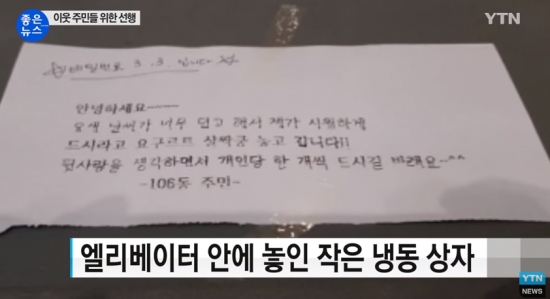 좋은 뉴스
이웃 주민들 위한 선행
YTN
3. 3. 입니다
안녕하세요~~~
요새 날씨가 너무 덥고 해서 제가 시원하게
드시라고 요구르트 살짝쿵 놓고 갑니다!!
뒷사람을 생각하면서 개인당 한 개씩 드시길 바래요~^^
-106동 주민-
엘리베이터 안에 놓인 작은 냉동 상자
YTN
NEWS